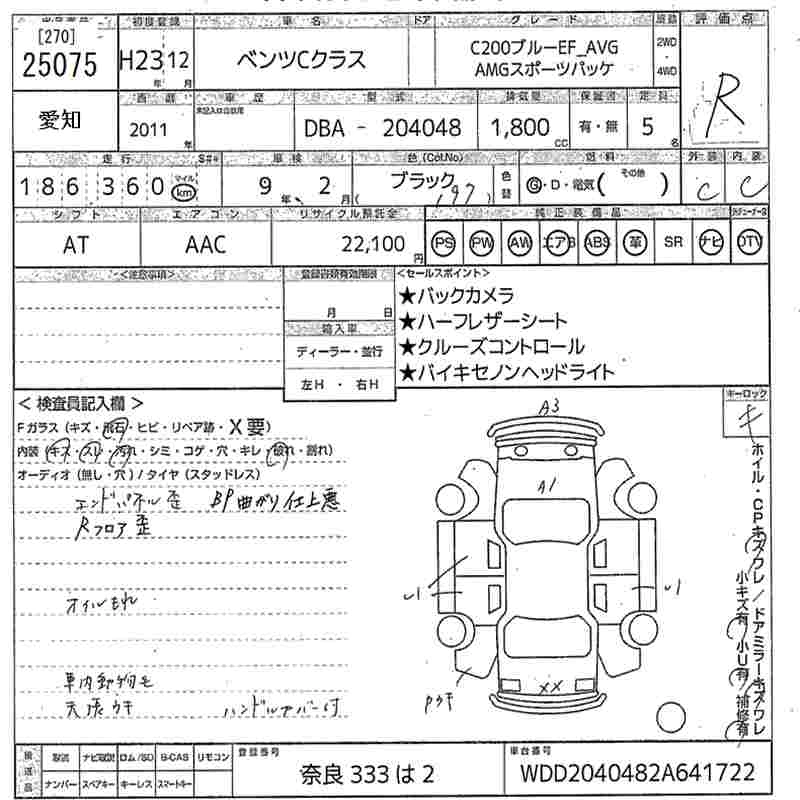 [270] 初度登録 車名 ドア グレード 評価点
25075 H23年12月 ベンツCクラス C200ブルーEF_AVG 2WD
AMGスポーツパッケ 4WD
R
愛知 車歴 型式 排気量 保証書 定員
未記入は自家用
2011年 DBA - 204048 1,800cc 有・無 5名
走行 車検 色(Col.No) 燃料 外装 内装
186360 マイル km 9年 2月 ブラック (197) 色替 G・D・電気(その他) C C
シフト エアコン リサイクル預託金 純正装備品
AT AAC 22,100円 PS PW AW エアB ABS 革 SR ナビ DTV
<注意事項> 登録書類有効期限 <セールスポイント>
月 日 ★バックカメラ
輸入車 ★ハーフレザーシート
ディーラー・並行 ★クルーズコントロール
左H ・ 右H ★バイキセノンヘッドライト
キーロック
キ
<検査員記入欄>
Fガラス(キズ・飛石・ヒビ・リペア跡・X要)
内装(キズ・スレ・汚れ・シミ・コゲ・穴・キレ・破れ・割れ)
オーディオ(無し・穴)/タイヤ(スタッドレス)
エンドパネル歪 BP曲がり仕上悪
Rフロア歪
オイルもれ
車内動物毛
天張ウキ ハンドルカバー付
A3
A1
U1
U1
Pウキ
XX
ホイル・CPキズワレ/ドアミラーキズワレ
小キズ有 小U有 補修有
後送品 取説 ナビ取説 ロム/SD B-CAS リモコン 登録番号 車台番号
ナンバー スペアキー キーレス スマートキー 奈良 333 は 2 WDD2040482A641722